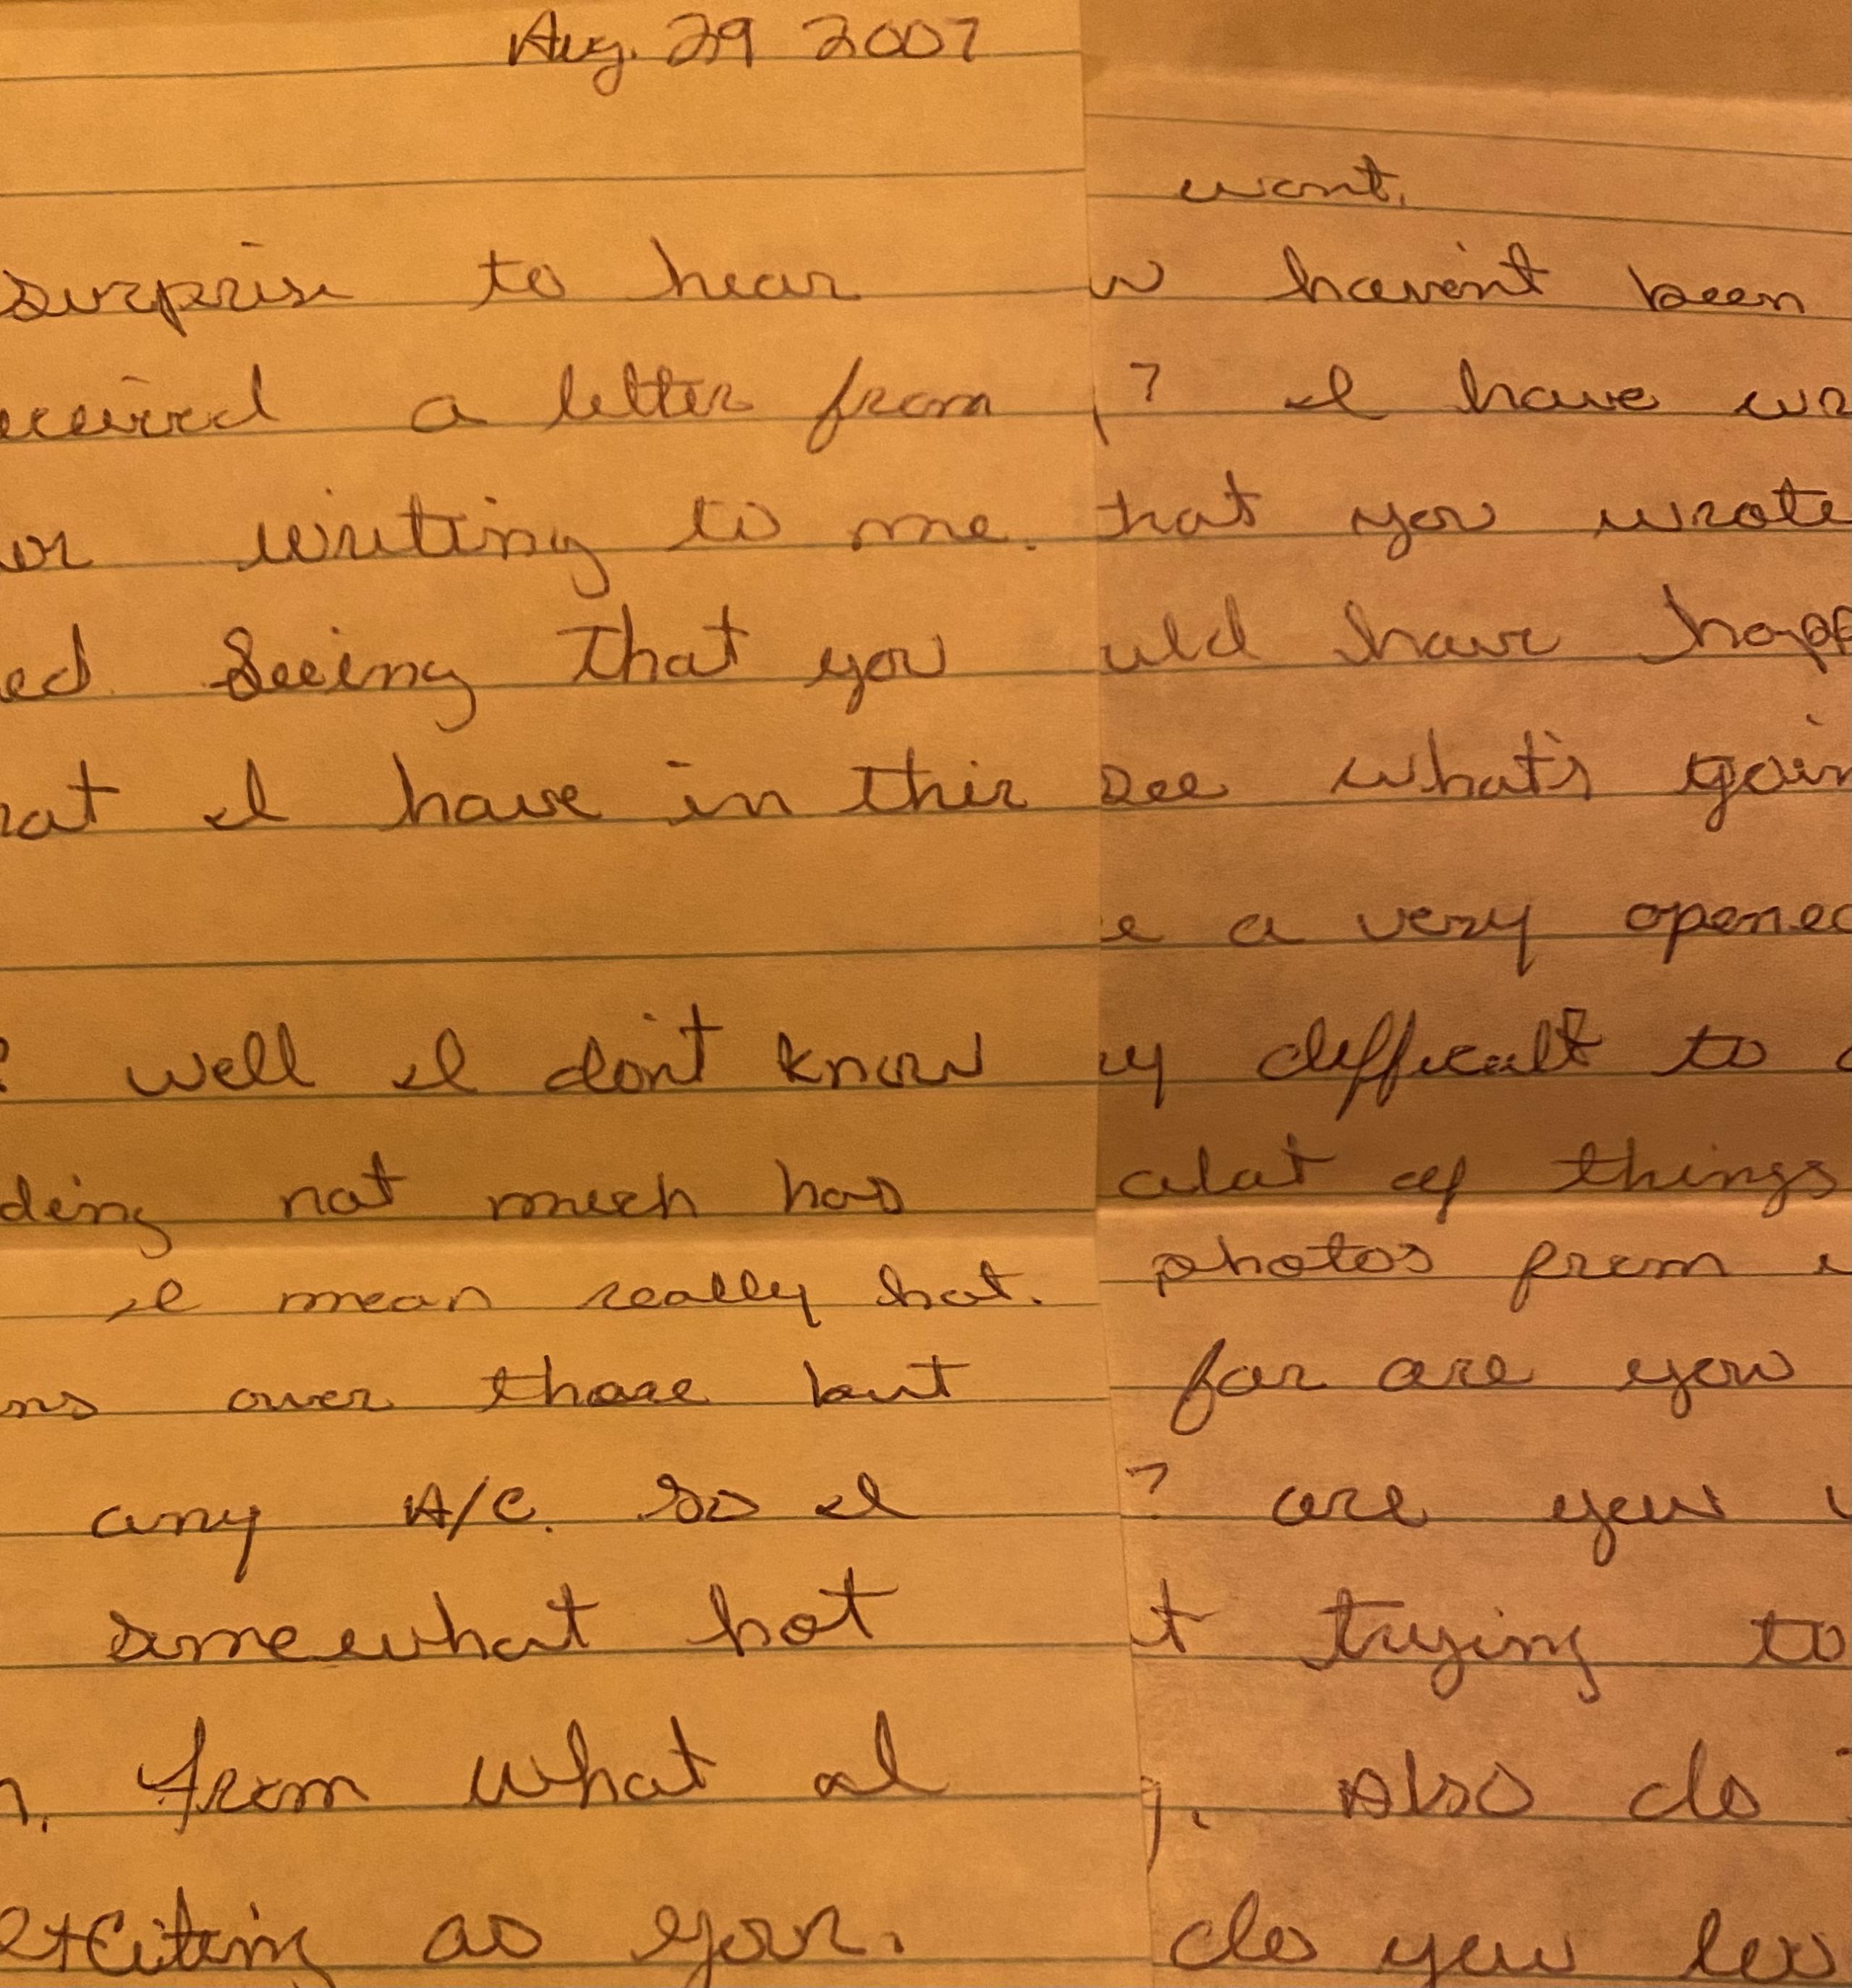 Aug. 29 2007
surprise to hear
eceived a letter from
or writing to me.
ed seeing that you
hat I have in this
? well I don't know
ding not much has
I mean really hot.
ns over those but
any A/C. So I
somewhat hot
n. from what I
exciting as your.
want.
w haven't been
? I have wr
that you wrote
uld have happ
see what's goin
e a very opened
ry difficult to
alot of things
photos from
far are you
? are you
t trying to
g. Also do
do you